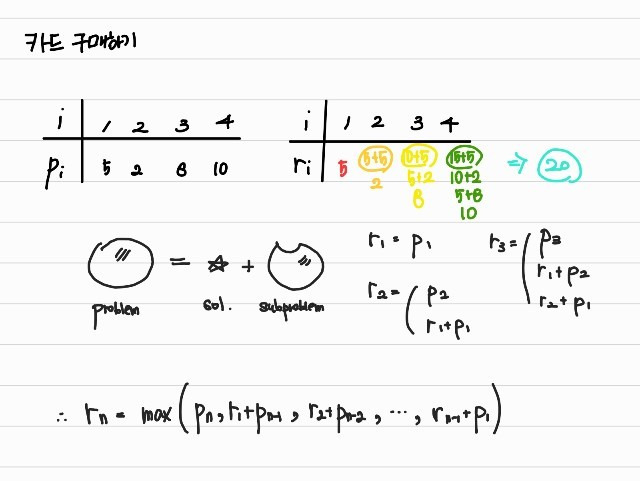 카드 구매하기
i 1 2 3 4
Pi 5 2 8 10
i 1 2 3 4
ri 5 5+5 10+5 15+5 ⇒ 20
2 5+2 10+2
8 5+8
10
problem = ☆ + subproblem
sol.
r1 = P1
r2 = ( P2
r1+P1
r3 = ( P3
r1+P2
r2+P1
∴ rn = max(Pn, r1+Pn-1, r2+Pn-2, ..., rn-1+P1)